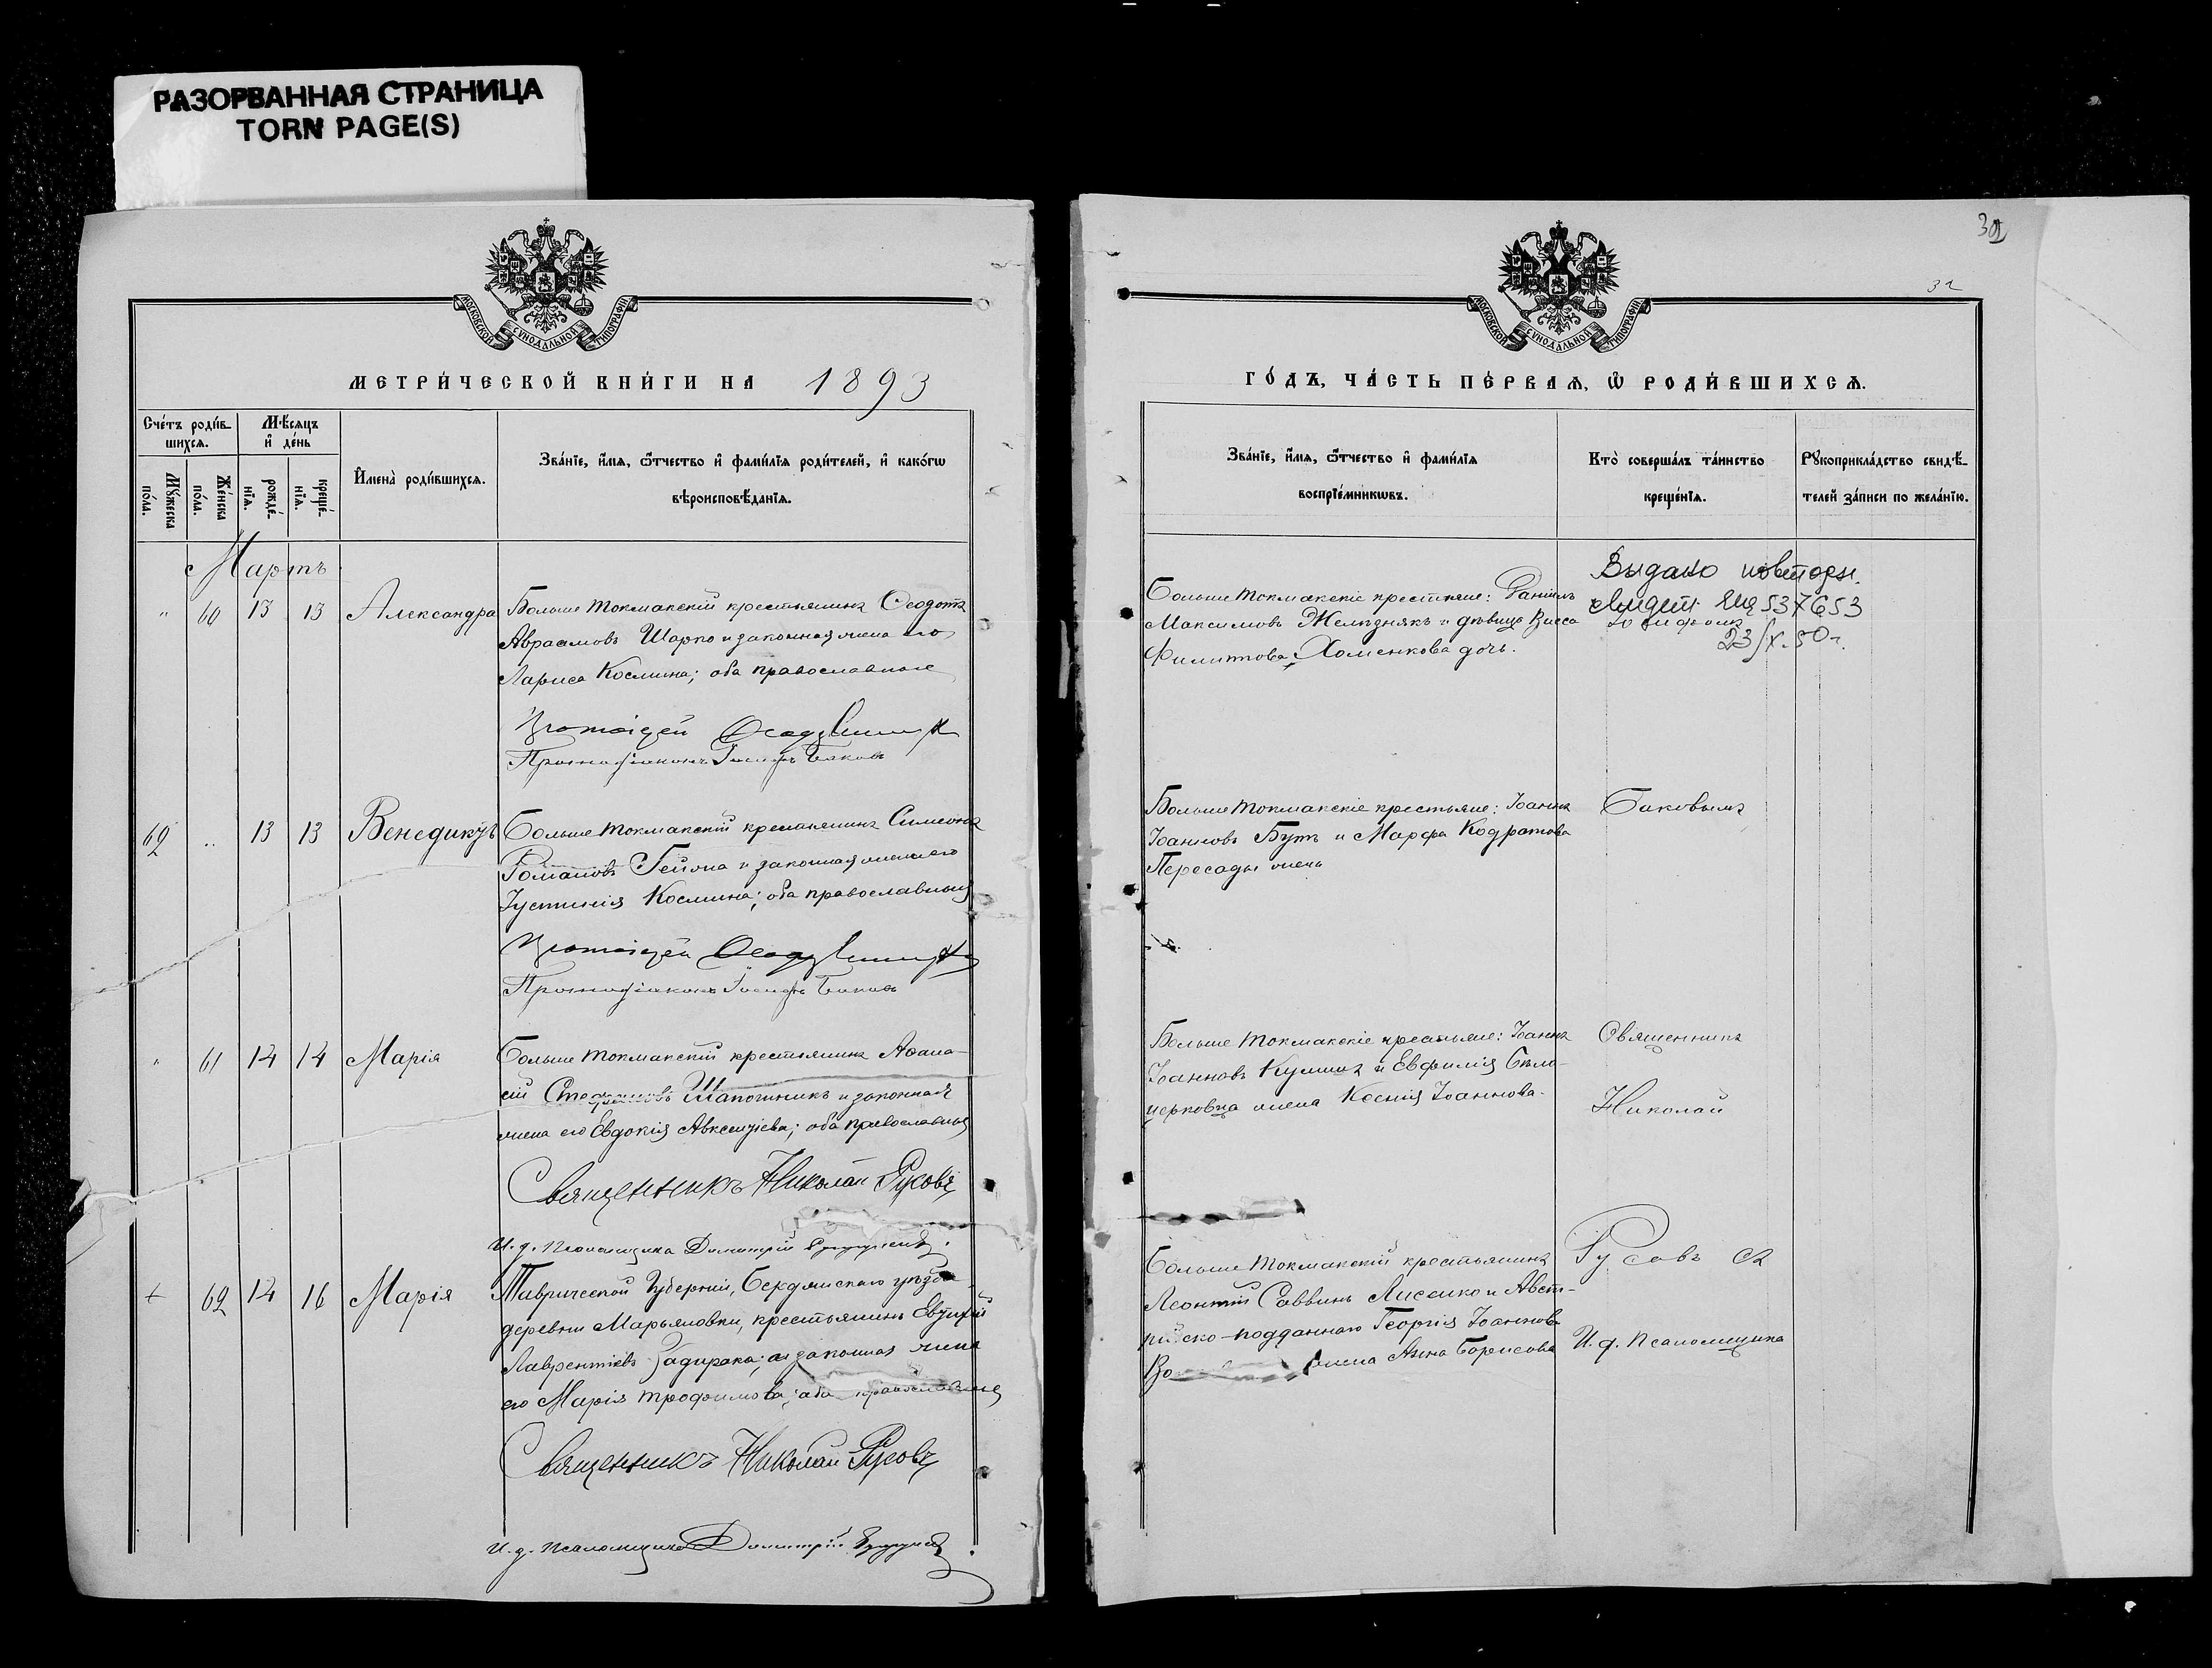 РАЗОРВАННАЯ СТРАНИЦА
TORN PAGE(S)
МОСКОВСКОЙ СѴНОДАЛЬНОЙ ТИПОГРАФІИ
МЕТРИ́ЧЕСКОЙ КНИ́ГИ НА 1893
Сче́тъ роди́в-
шихсѧ.
Мѣ́сяцъ
и҆ де́нь
Мꙋ́жеска
по́ла.
Же́нска
по́ла.
рожде́-
нїѧ.
креще́-
нїѧ.
И҆мена̀ роди́вшихсѧ.
Зва́нїе, и҆́мѧ, ѻ҆́тчество и҆ фами́лїѧ роди́телей, и҆ како́гѡ
вѣроисповѣ́данїѧ.
Мартъ
" 60 13 13 Александра
Больше Токмакскій крестьянинъ Ѳеодотъ
Авраамовъ Шарко и законная жена его
Лариса Космина; оба православные
Протоіерей
Протодіаконъ Іосифъ Баковъ
62 " 13 13 Венедиктъ
Больше Токмакскій крестьянинъ Симеонъ
Романовъ и законная жена его
Іустинія Космина; оба православныя
Протоіерей
Протодіаконъ Іосифъ Баковъ
" 61 14 14 Марія
Больше Токмакскій крестьянинъ Аѳана-
сій Стефановъ Шапочникъ и законная
жена его Евдокія Авксентіева; оба православныя
Священникъ Николай Русовъ
И. д. псаломщика Димитрій
+ 62 14 16 Марія
Таврической Губерніи, Бердянскаго уѣзда
деревни Марьяновки, крестьянинъ Евѳимій
Лаврентіевъ Задирака; и законная жена
его Марія Трофимова; оба православные
Священникъ Николай Русовъ
И. д. псаломщика Димитрій
32
МОСКОВСКОЙ СѴНОДАЛЬНОЙ ТИПОГРАФІИ
ГО́ДЪ, ЧА́СТЬ ПЕ́РВАѦ, Ѽ РОДИ́ВШИХСѦ.
Зва́нїе, и҆́мѧ, ѻ҆́тчество и҆ фами́лїѧ
воспрїе́мникѡвъ.
Кто̀ соверша́лъ та́инство
креще́нїѧ.
Рꙋкоприкла́дство свидѣ́-
телей за́писи по жела́нїю.
Больше Токмакскіе крестьяне: Даніилъ
Максимовъ Желѣзнякъ и дѣвица Васса
Филиппова Хоменкова дочь.
Выдано повторн.
свидет. ЯЩ 537653
Іосифомъ
23/X.50г.
Больше Токмакскіе крестьяне: Іоаннъ
Іоанновъ Бутъ и Марѳа Кодратова
Пересады жена
Баковымъ
Больше Токмакскіе крестьяне: Іоаннъ
Іоанновъ и Евфимія Бѣло-
церковца жена Ксенія Іоаннова.
Священникъ
Николай
Больше Токмакскій крестьянинъ
Леонтій Саввинъ Лисенко и Авст-
рійско-подданнаго Георгія Іоаннова
жена Анна Борисова
Русовъ съ
И. д. псаломщика